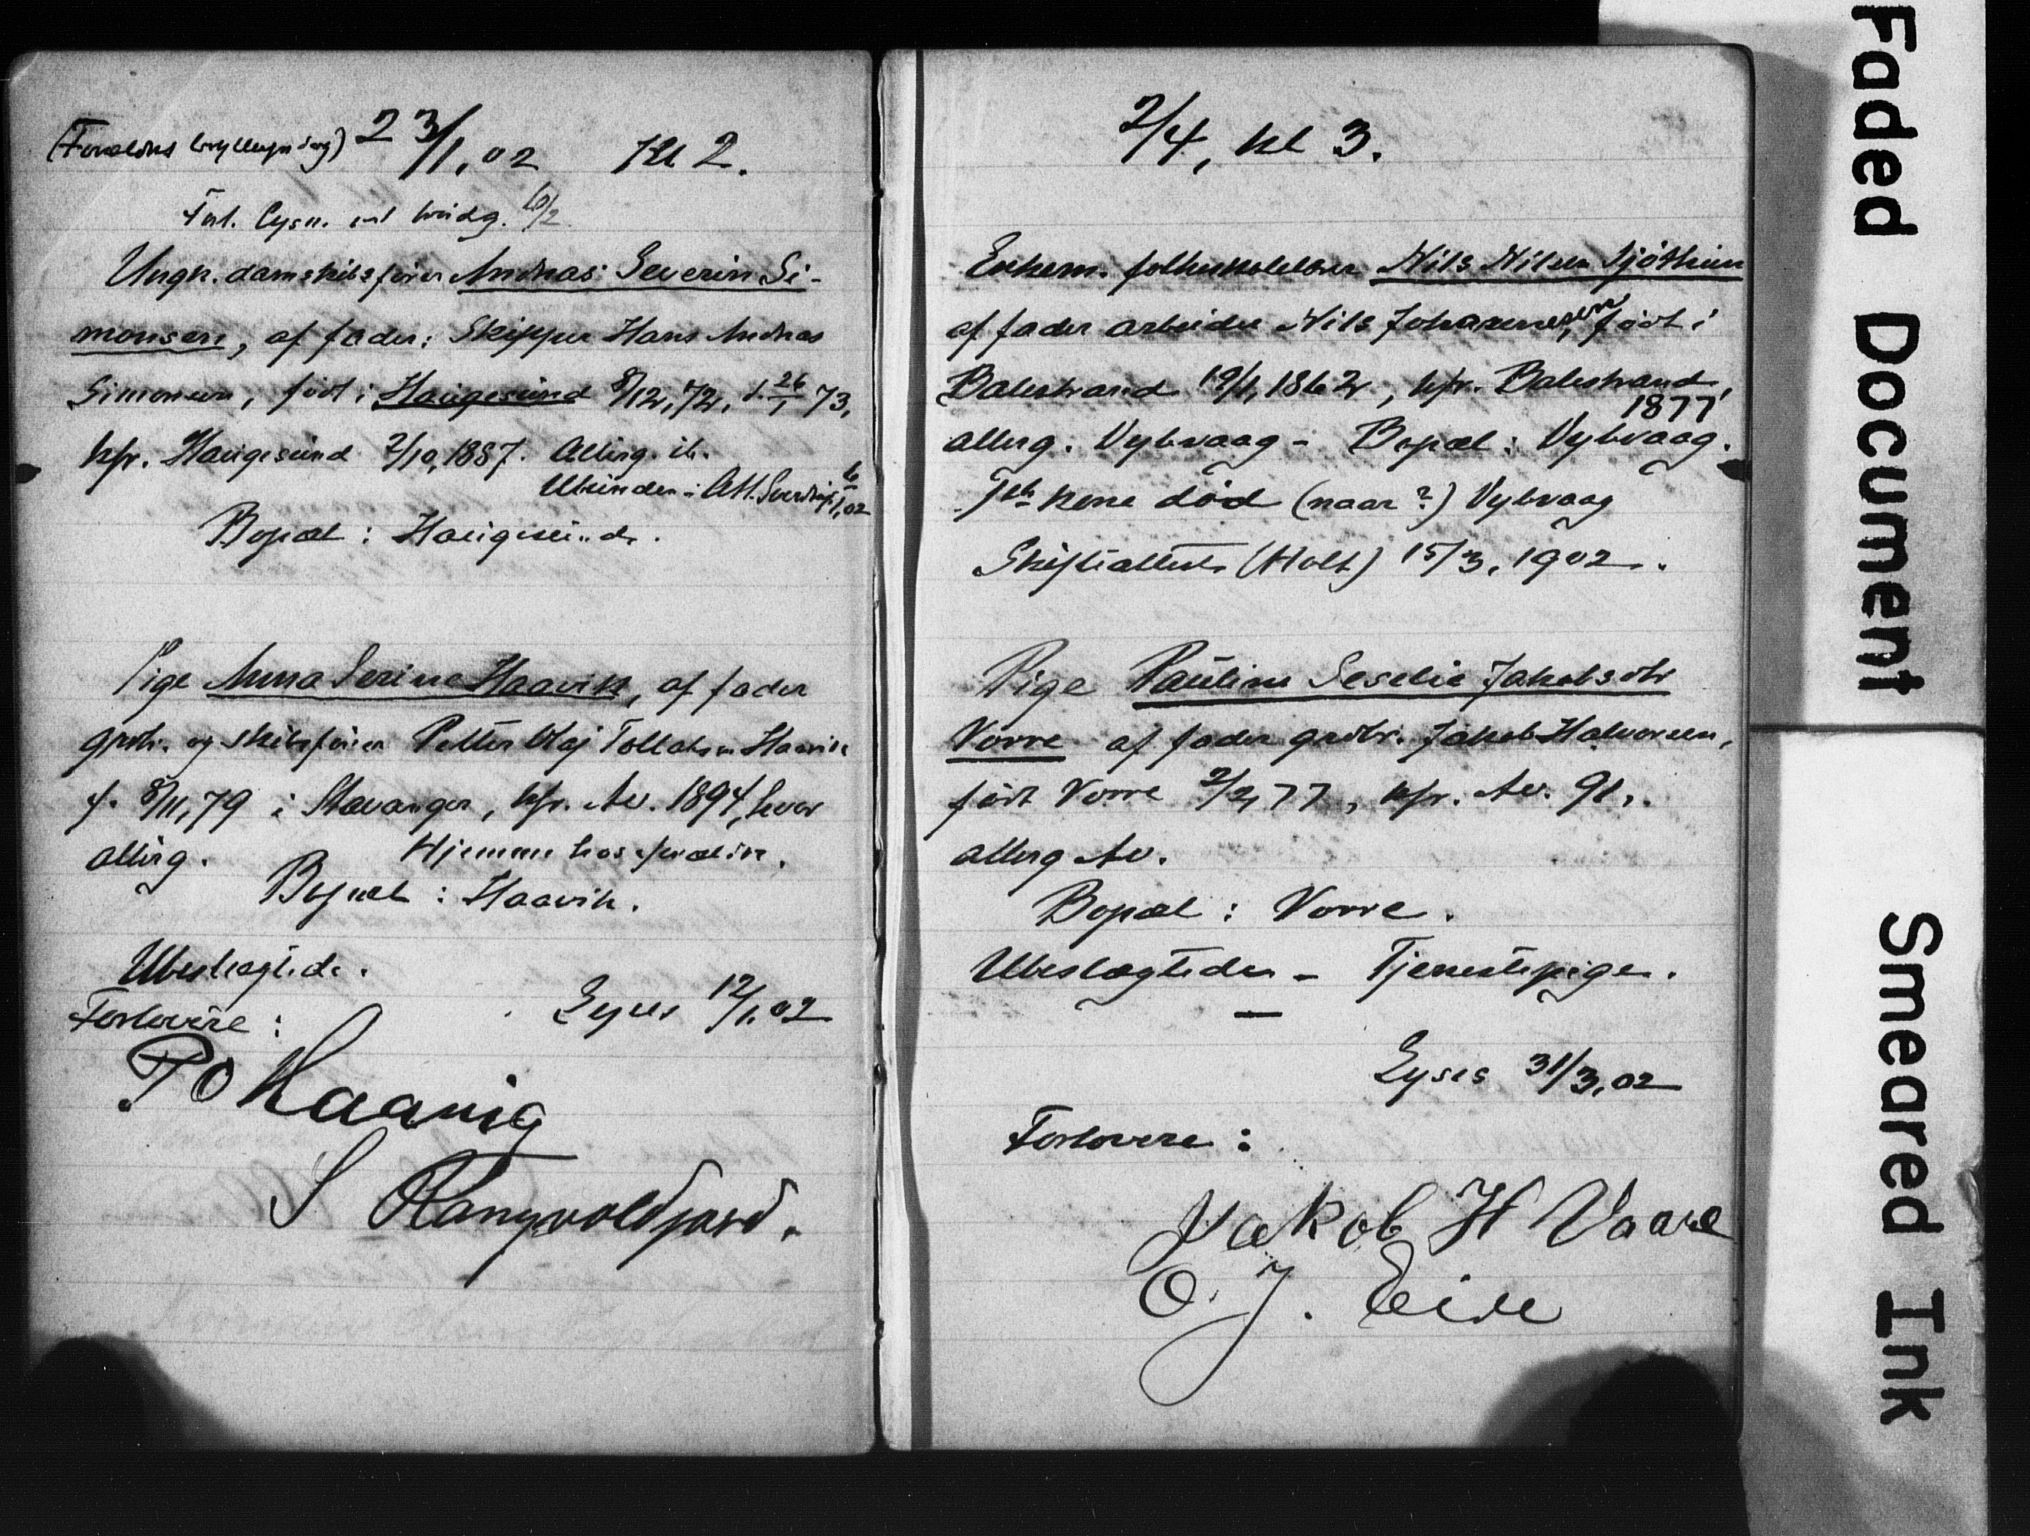 (Forældres bryllupsdag) 23/1,02 Kl 2.
Forl. Lysn. 6/2
Ungk. damskibsfører Andreas Severin Si-
monsen, af fader: Skipper Hans Andreas
Simonsen, født i Haugesund 8/12,72, d. 26/1 73,
kfr. Haugesund 2/10,1887. Altirg. ib.
6/1,02
Bopæl: Haugesund.
Pige Anna Serine Haavik, af fader
grdbr. og skibsfører Petter Olaj Tollaksen Haavik
f. 8/11,79 i Stavanger, kfr. Av. 1894, hvor
altirg. Hjemme hos forældre.
Bopæl: Haavik.
Ubeslægtede.
Forlovere: Lyses 12/1.02
P O Haavig
S Rangvoldjord.
2/4, kl 3.
Enkem. folkeskolelærer Nils Nilsen Sjøtheim
af fader arbeider Nils Johannessen, født i
Balestrand 19/1,1862, kfr. Balestrand,
1877
alterg. Vybvaag - Bopæl: Vybvaag.
kone død (naar?) Vybvaag
Skifteattest (Holt) 15/3, 1902.
Pige Pauline Seselie Jakobsdtr
Vorre af fader grdbr. Jakob Halvorsen,
født Vorre 2/2,77, kfr. Av. 91,
alterg Av.
Bopæl: Vorre.
Ubeslægtede - Tjenestepige.
Lyses 31/3,02
Forlovere:
Jakob H Vaare
O. J. Eide
Faded Document
Smeared Ink